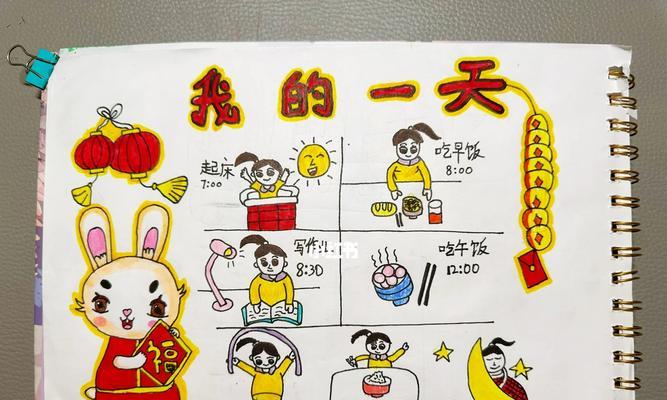 我的一天
起床
7:00
吃早饭
8:00
写作业
8:30
吃午饭
12:00
福
小红书